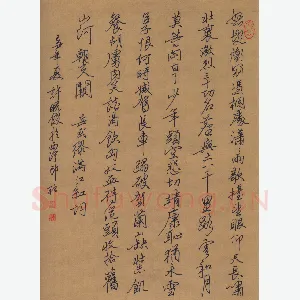 怒髮衝冠憑欄處瀟瀟雨歇擡望眼仰天長嘯
壯懷激烈三十功名塵與土八千里路雲和月
莫等閒白了少年頭空悲切靖康恥猶未雪
臣子恨何時滅駕長車踏破賀蘭山缺壯志飢
餐胡虜肉笑談渴飲匈奴血待從頭收拾舊
山河朝天闕 岳武穆滿江紅詞
夏許於西泠印社